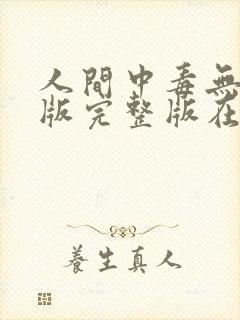 人間中毒無
版完整版在
養生真人